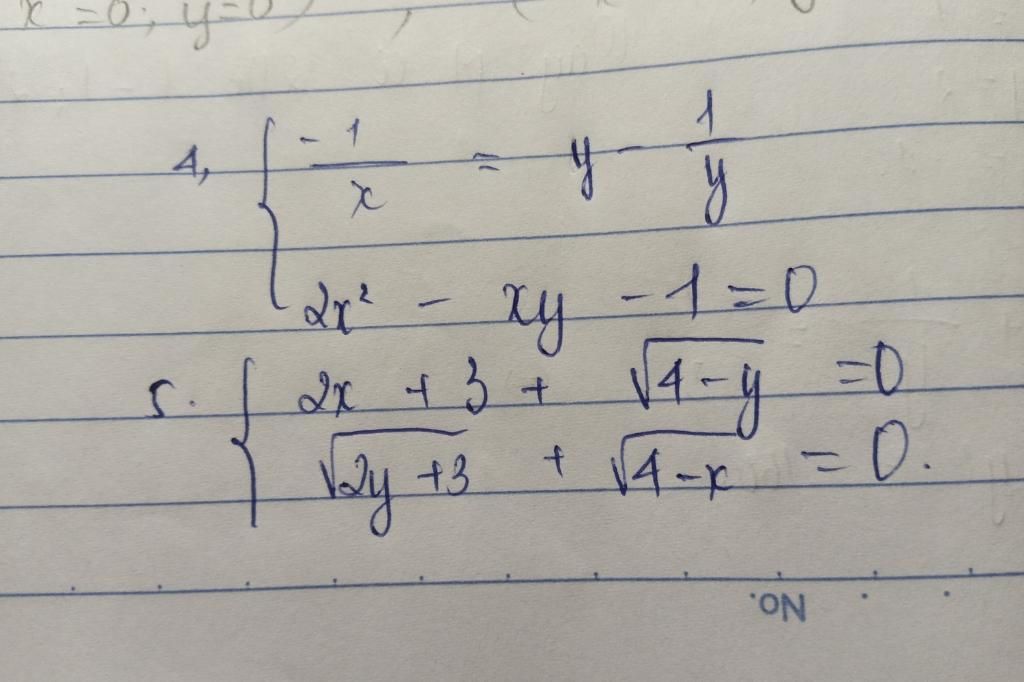 x = 0; y = 0
4, { -1/x = y - 1/y
2x² - xy - 1 = 0
5. { 2x + 3 + √(4-y) = 0
√(2y+3) + √(4-x) = 0.
No.